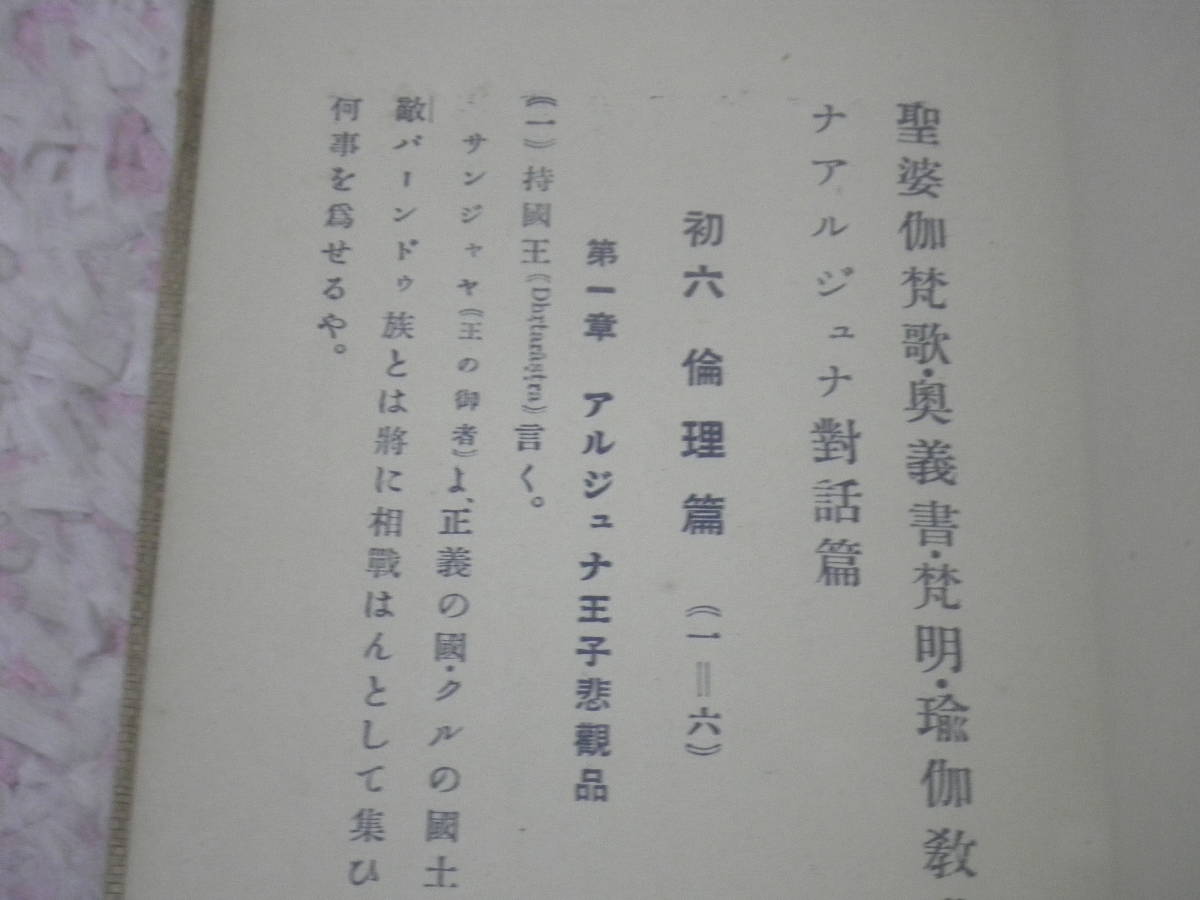 聖婆伽梵歌・奧義書・梵明・瑜伽教
ナアルジュナ對話篇
初六 倫理篇 (一=六)
第一章 アルジュナ王子悲觀品
(一)持國王(Dhṛtarāṣṭra)言く。
サンジャヤ(王の御者)よ、正義の國・クルの國土
敵パーンドゥ族とは將に相戰はんとして集ひ
何事を爲せるや。